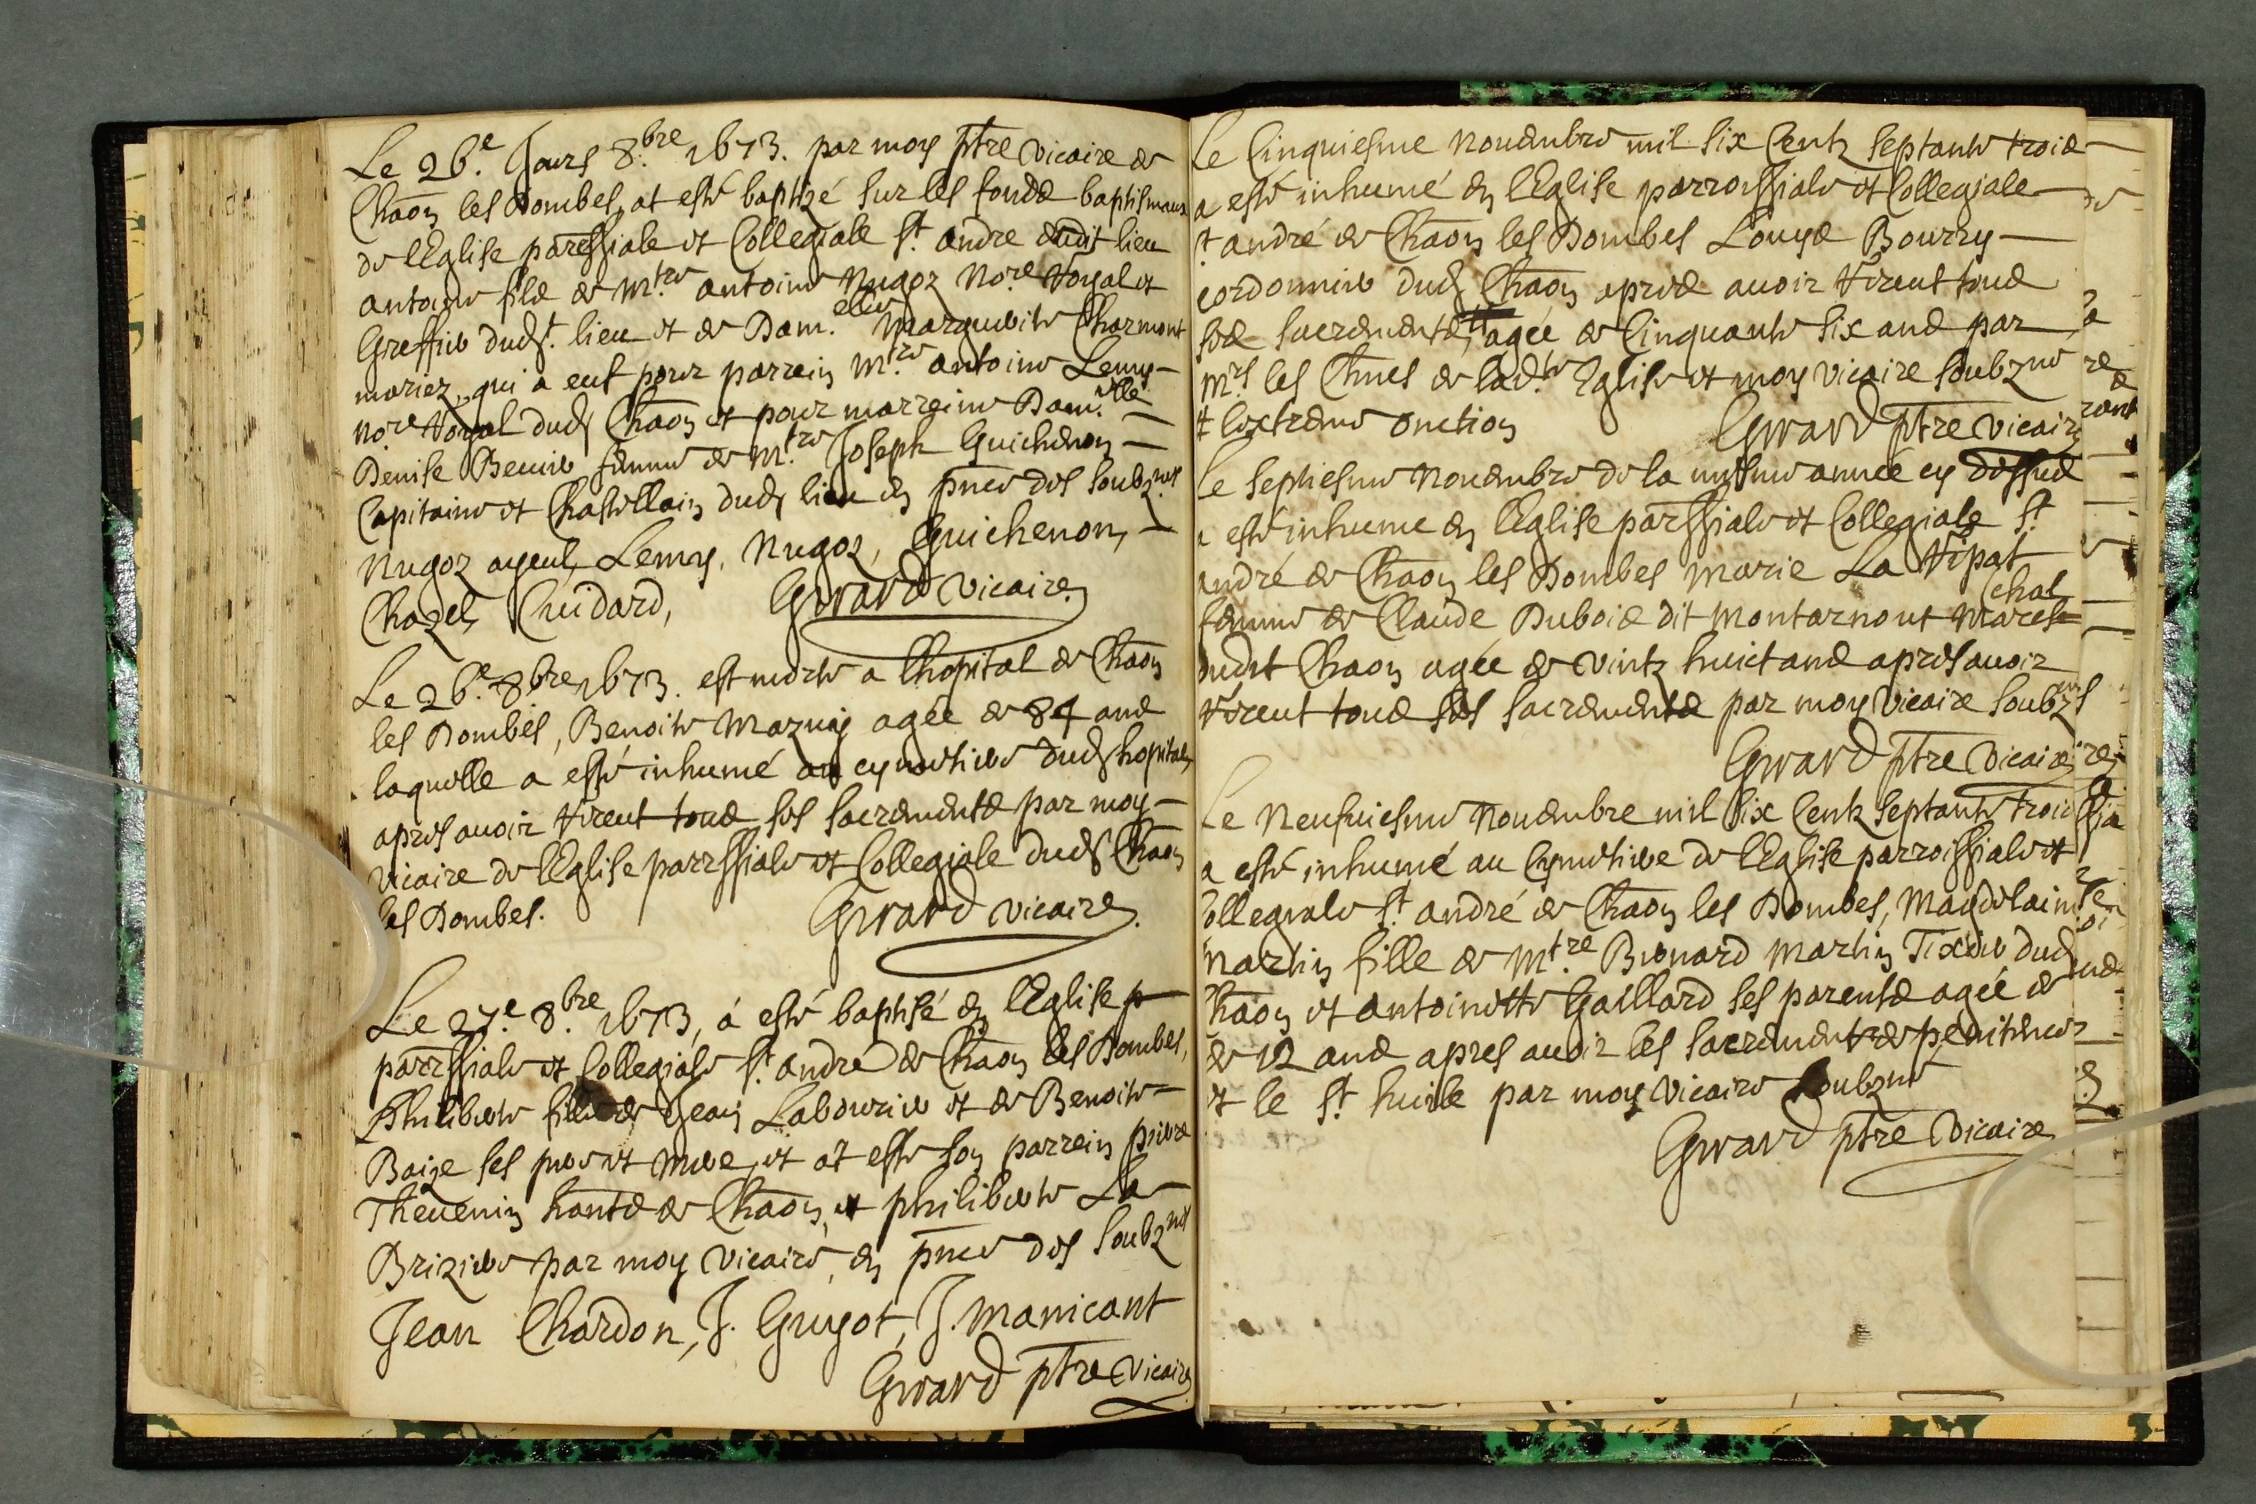 Le 26.e Jours 8.bre 1673. par moy ptre vicaire de
Chaon les Dombes, at esté baptizé sur les fonds baptismaux
de lEglise parossiale et Collegiale St. andre dudit lieu
antoine fils de Mtre antoine Nugoz No.re Royal et
Greffier dudt. lieu et de Dam.elle Marguerite Charmont
mariez, qui a eut pour parrein Mtre antoine Lemy
no.re Royal dud Chaon et pour marreine Dam.elle
Denise Bernie femme de Mtre Joseph Guichenon
Capitaine et Chastellain dud lieu en pnce des soubznes
Nugoz ayeul, Lemy, Nugoz, Guichenon,
Chazel, Cuidard, Girard vicaire
Le 26.e 8bre 1673. est morte a lhopital de Chaon
les Dombes, Benoite Mazuy agée de 84 ans
laquelle a esté inhumé au cymetiere dud hopital,
apres auoir Receut tous ses sacrements par moy
vicaire de lEglise parrssiale et Collegiale dud Chaon
les Dombes. Girard vicaire
Le 27.e 8.bre 1673, á esté baptisé en lEglise p
parrssiale et Collegiale St. andré de Chaon les Dombes,
Philiberte fille de Jean Labourier et de Benoite
Baize ses pere et mere, et at esté son parrein pierre
Theuenin hante de Chaon, et philiberte La
Briziere par moy vicaire, en pnce des soubznes
Jean Chardon, J. Guyot, J. Manicant
Girard ptre vicaire
Le Cinquiesme Nouembre mil six Centz septante trois
a esté inhumé en lEglise parroissiale et Collegiale
St andré de Chaon les Dombes Louys Bourry
cordonnier dud Chaon apres auoir Receut tous
ses sacrements, # agée de Cinquante six ans par
Mrs les Chnes de lad.te Eglise et moy vicaire soubzne
# lextreme onction Girard ptre vicaire
Le septiesme Nouembre de la mesme année cy dessus
a esté inhume en lEglise parrssiale et Collegiale St.
andré de Chaon les Dombes Marie La Ripat
femme de Claude Dubois dit Montarnout Mares=
chal
dudit Chaon agée de vintz huict ans apres auoir
Receut tous ses sacrements par moy vicaire soubzns
Girard ptre vicaire
Le Neufuiesme Nouembre mil six Centz septante trois
a esté inhumé au Cymetiere de lEglise parroissiale et
Collegiale St. andré de Chaon les Dombes, Magdelaine
Martin fille de Mtre Bernard Martin Tixier dud
Chaon et Antoinette Gaillard ses parents agée de
de 12 ans apres auoir les sacrements de penitence
et le St. huile par moy vicaire soubzne
Girard ptre vicaire